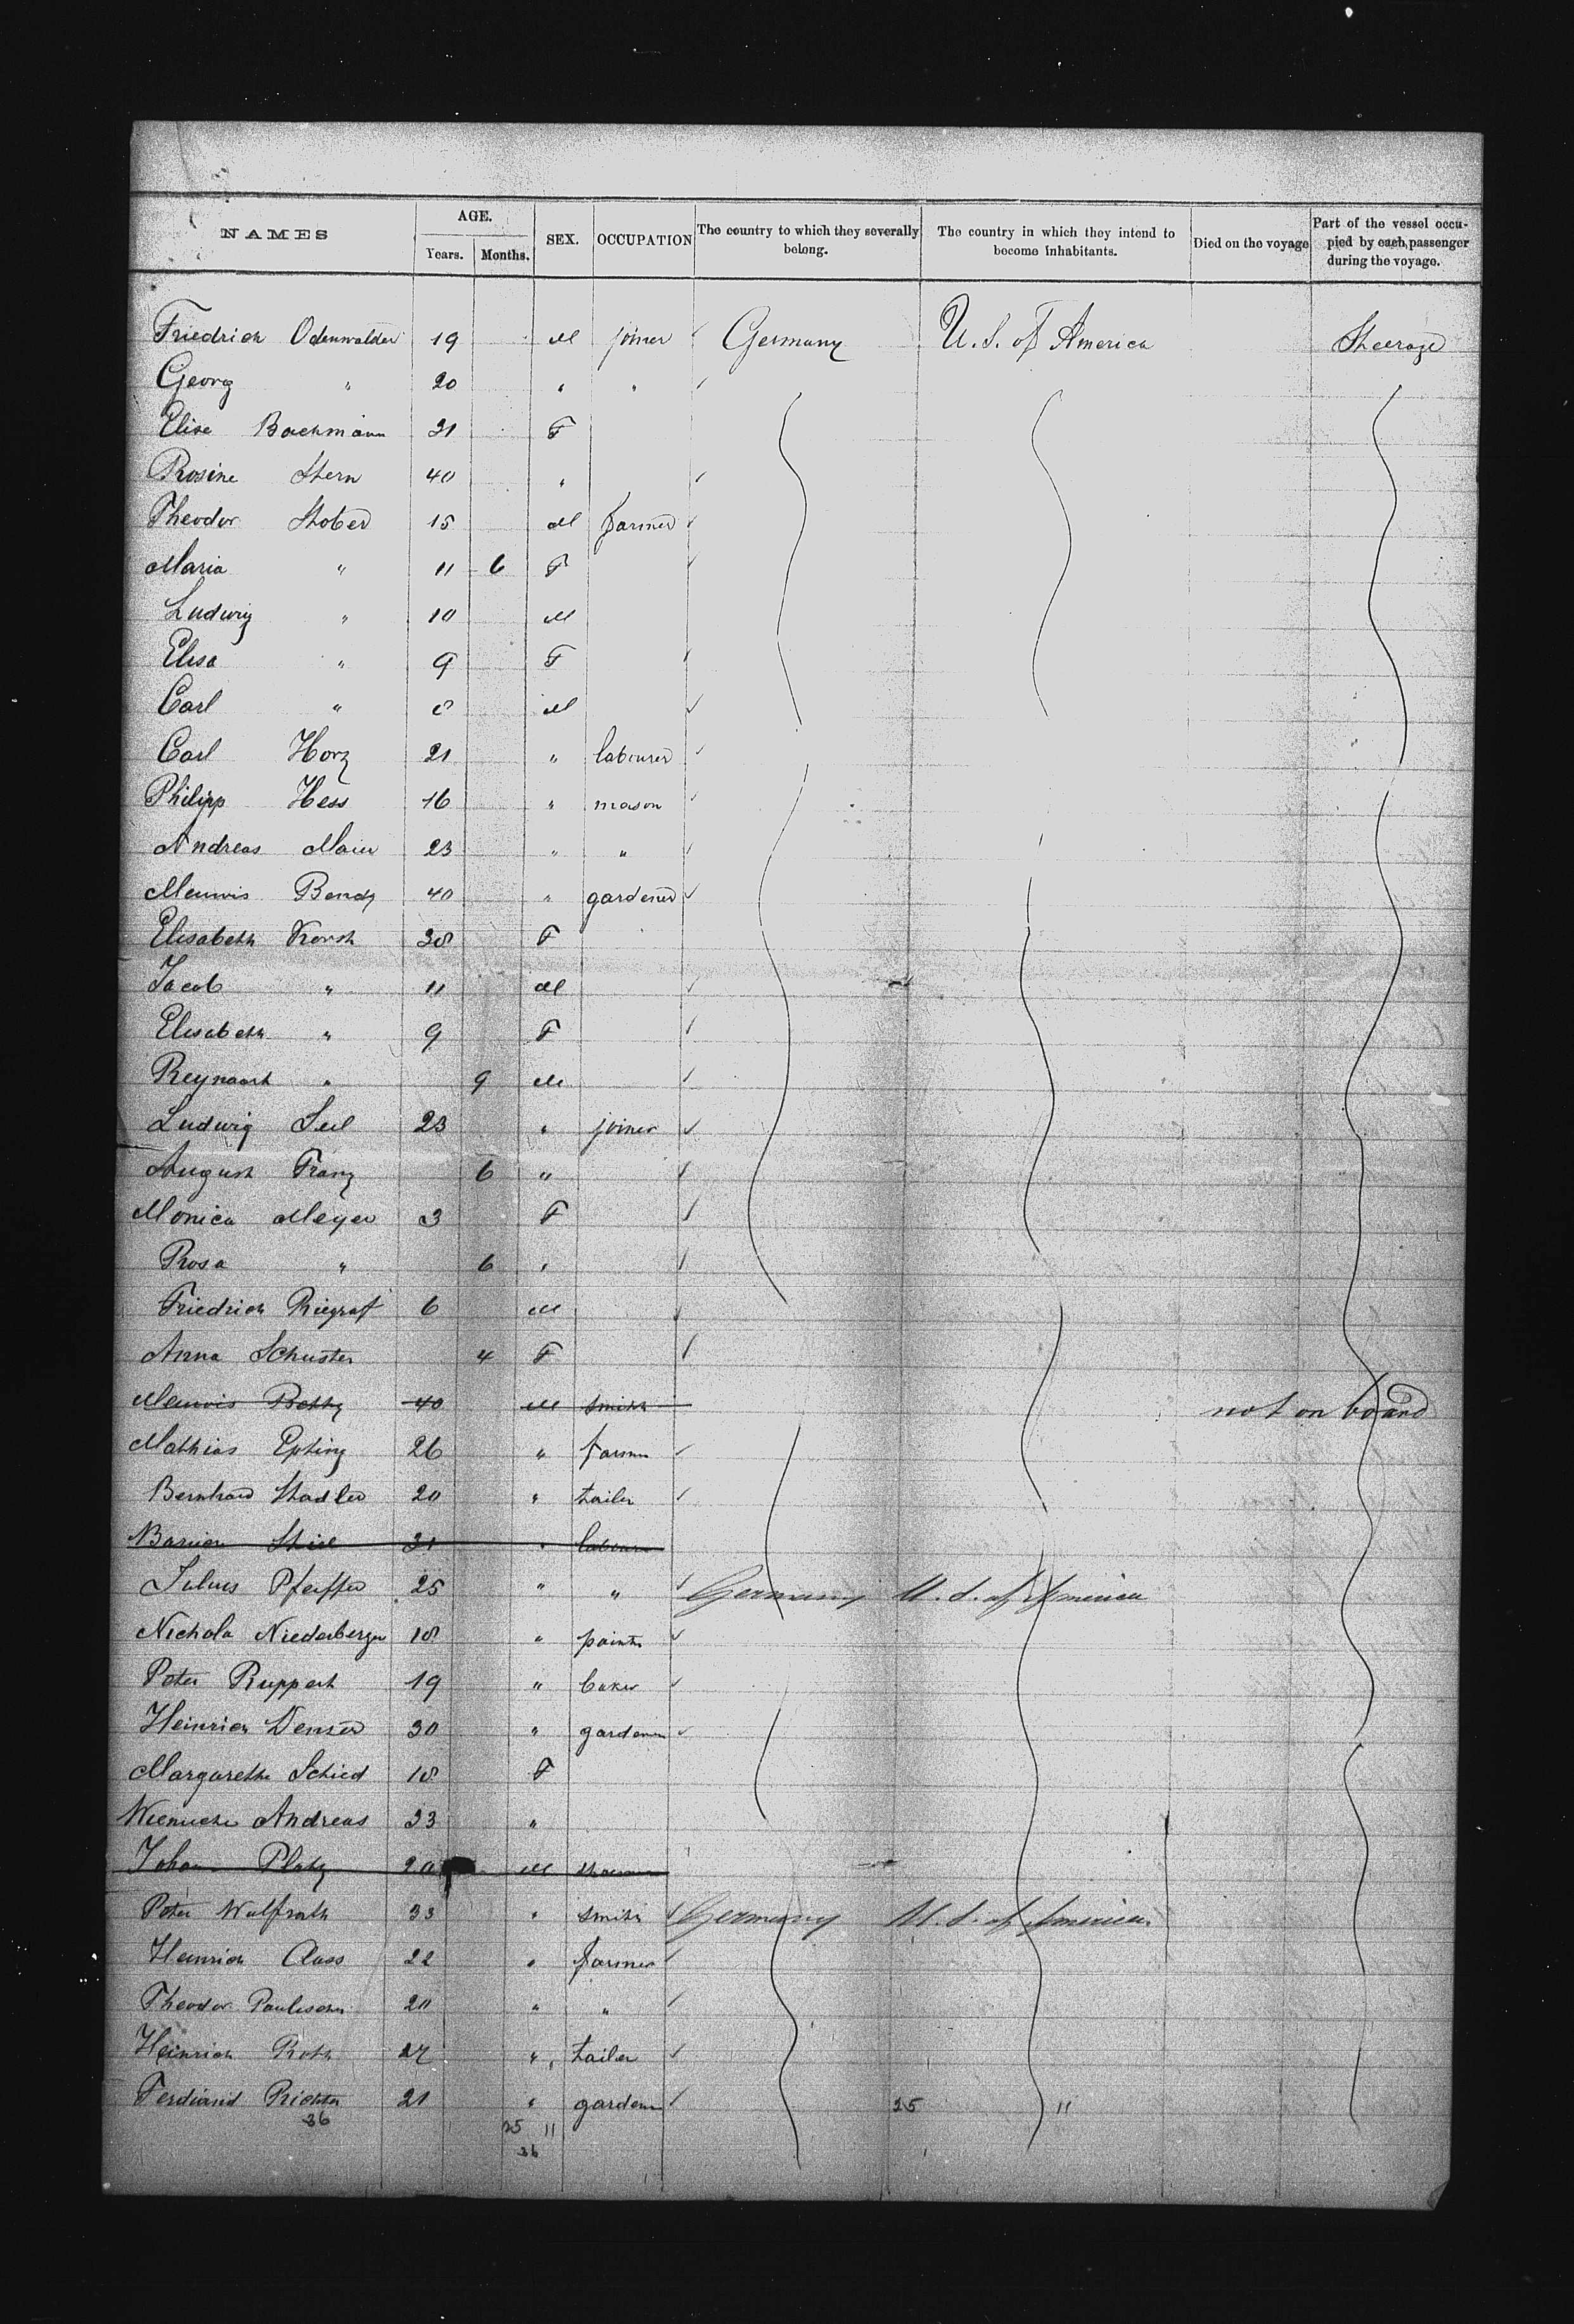 NAMES AGE. Years. Months. SEX. OCCUPATION The country to which they severally belong. The country in which they intend to become inhabitants. Died on the voyage Part of the vessel occupied by each passenger during the voyage.
Friedrich Odenwalder 19 M joiner Germany U. S. of America Steerage
Georg " 20 " "
Elise Bachmann 31 F
Rosine Stern 40 "
Theodor Stober 15 M farmer
Maria " 11 6 F
Ludwig " 10 M
Elisa " 9 F
Carl " 8 M
Carl Horz 21 " labourer
Philipp Hess 16 " mason
Andreas Maier 23 " "
Bendz 40 " gardener
Elisabeth 38 F
Jacob " 11 M
Elisabeth " 9 F
" 9 M
Ludwig Seil 23 " joiner
August Franz 6 "
Monica Meyer 3 F
Rosa " 6 "
Friedrich Riegraf 6 M
Anna Schuster 4 F
40 M smith not on board
Mathias Epting 26 " farmer
Bernhard Stadler 20 " tailer
31 " labourer
Julius Pfeiffer 25 " " Germany U. S. of America
Nichola Niederberger 18 " painter
Peter Ruppert 19 " baker
Heinrich Denser 30 " gardener
Margarethe Schied 18 F
Andreas 23 "
Johann Platz 20 M
Peter Wulfrath 33 " smith Germany U. S. of America
Heinrich Class 22 " farmer
Theodor 20 " "
Heinrich Roth 27 " tailer
Ferdinand Richter 21 " gardener 25 11
36 25 11
36